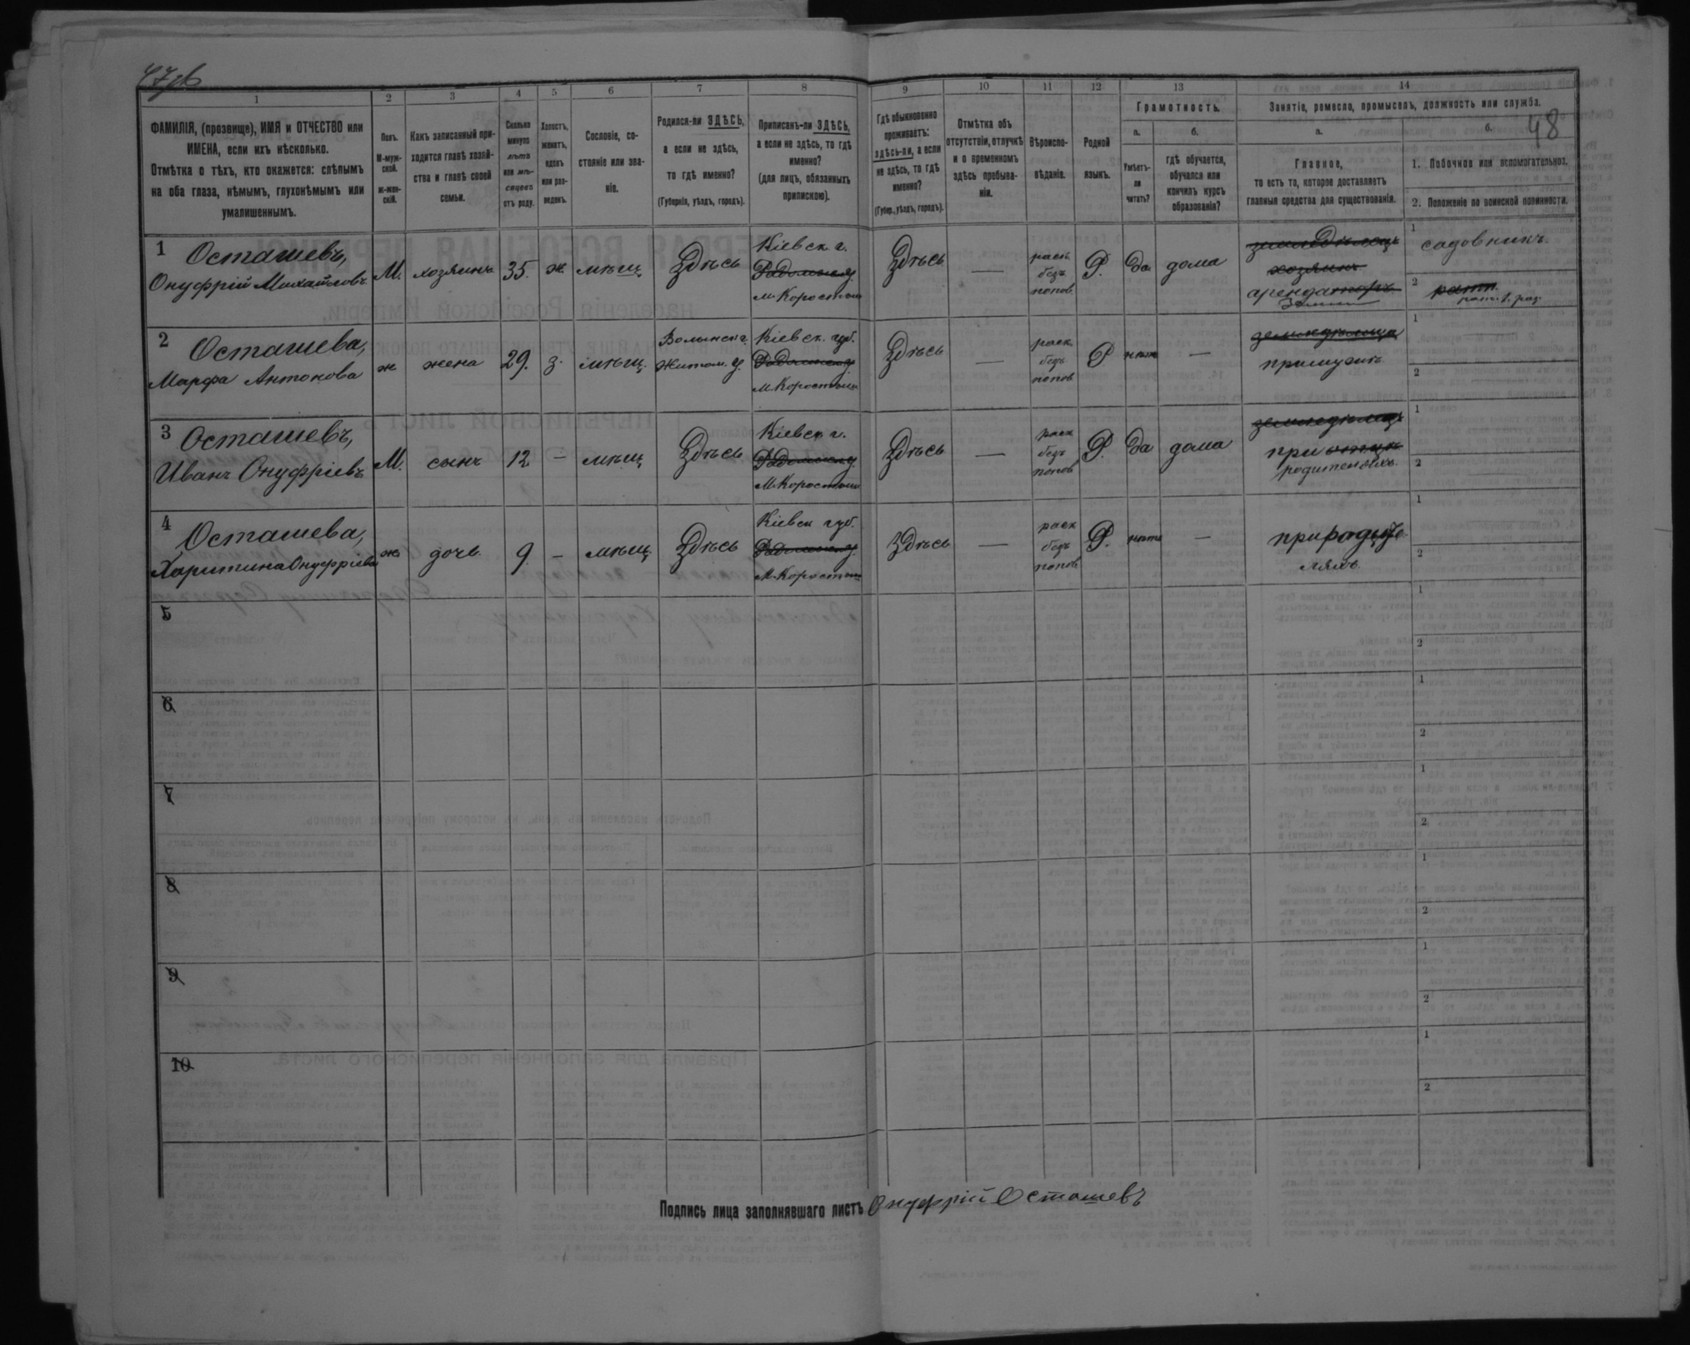 48
1 2 3 4 5 6 7 8 9 10 11 12 13 14
ФАМИЛІЯ, (прозвище), ИМЯ и ОТЧЕСТВО или
ИМЕНА, если ихъ нѣсколько.
Отмѣтка о тѣхъ, кто окажется: слѣпымъ
на оба глаза, нѣмымъ, глухонѣмымъ или
умалишеннымъ.
Полъ.
М-муж-
ской.
ж-жен-
скій.
Какъ записанный при-
ходится главѣ хозяй-
ства и главѣ своей
семьи.
Сколько
минуло
лѣтъ
или мѣ-
сяцевъ
отъ роду.
Холостъ,
женатъ,
вдовъ
или раз-
веденъ.
Сословіе, со-
стояніе или зва-
ніе.
Родился-ли ЗДѢСЬ,
а если не здѣсь,
то гдѣ именно?
(Губернія, уѣздъ, городъ).
Приписанъ-ли ЗДѢСЬ,
а если не здѣсь, то гдѣ
именно?
(для лицъ, обязанныхъ
припискою).
Гдѣ обыкновенно
проживаетъ:
здѣсь-ли, а если
не здѣсь, то гдѣ
именно?
(Губер., уѣздъ, городъ).
Отмѣтка объ
отсутствіи, отлучкѣ
и о временномъ
здѣсь пребыва-
ніи.
Вѣроиспо-
вѣданіе.
Родной
языкъ.
Грамотность.
а.
Умѣетъ-
ли
читать?
б.
гдѣ обучается,
обучался или
кончилъ курсъ
образованія?
Занятіе, ремесло, промыселъ, должность или служба.
а.
Главное,
то есть то, которое доставляетъ
главныя средства для существованія.
б.
1. Побочное или вспомогательное.
2. Положеніе по воинской повинности.
1 Осташевъ,
Онуфрій Михайловъ
М. хозяинъ 35. ж мѣщ. Здѣсь
Кіевск г.
Радомыс у
м. Коростыш
Здѣсь —
раск
безъ
поповъ
Р. Да дома
земледѣлецъ
хозяинъ
арендаторъ
1 садовникъ
2
2 Осташева,
Марфа Антонова
ж жена 29. з. мѣщ.
Волынск г.
Житом. у.
Кіевск. губ.
Радомыс у
м. Коростыш
Здѣсь —
раск
безъ
поповъ
Р нѣтъ —
земледѣлица
при мужѣ
1
2
3 Осташевъ,
Иванъ Онуфріевъ
М. сынъ 12 — мѣщ Здѣсь
Кіевск г.
Радомыс у
м. Коростыш
Здѣсь —
раск
безъ
поповъ
Р. Да дома
земледѣлецъ
при отцѣ
родителяхъ
1
2
4 Осташева,
Харитина Онуфріева
ж дочь 9 — мѣщ. Здѣсь
Кіевск губ.
Радомыс у
м. Коростыш
Здѣсь —
раск
безъ
поповъ
Р. нѣтъ —
при родите
ляхъ
1
2
5
1
2
6
1
2
7
1
2
8
1
2
9
1
2
10
1
2
Подпись лица заполнявшаго листъ Онуфрій Осташевъ